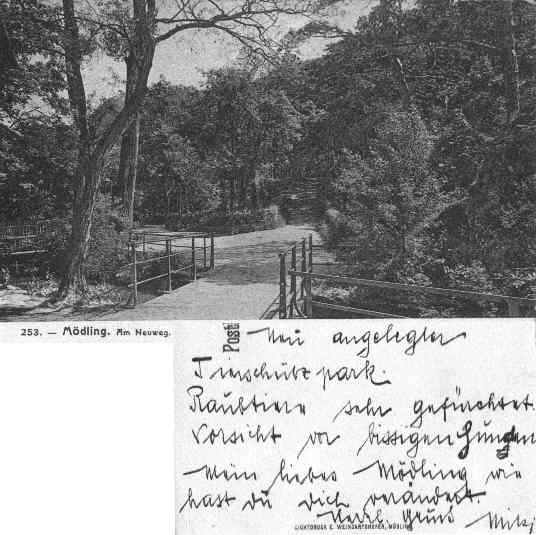 253. — Mödling. Am Neuweg.
Post
Neu angelegter
Tierschutzpark.
Raubtiere sehr gefürchtet.
Vorsicht vor bissigen Hunden
Mein liebes Mödling wie
hast du dich verändert
Herzl. Gruß Mitzi
LICHTDRUCK E. WEINGARTSHOFER, MÖDLING